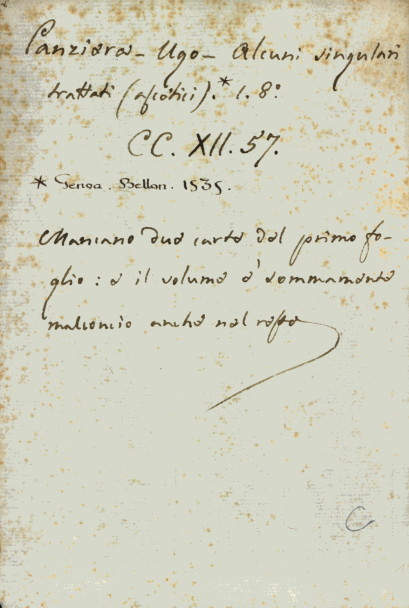 Panziera - Ugo - Alcuni singulari
trattati (ascetici).* 1. 8º
CC. XII. 57.
* Genoa. Bellon. 1535.
Mancano due carte del primo fo-
glio: e il volume è sommamente
malconcio anche nel resto
C